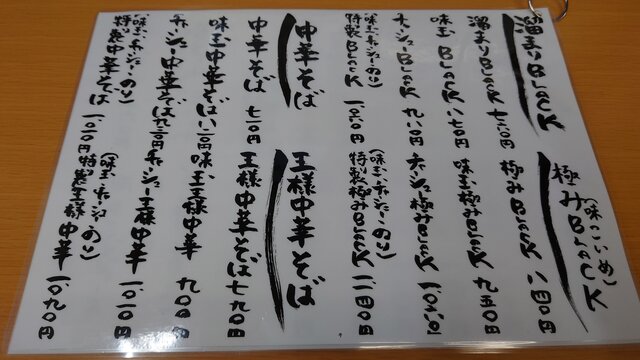 溜まりBLACK
溜まりBLACK 七六〇円
味玉BLACK 八七〇円
チャーシューBLACK 九八〇円
(味玉・チャーシュー・のり)
特製BLACK 一、〇六〇円
極みBLACK
(味こいめ)
極みBLACK 八四〇円
味玉極みBLACK 九五〇円
チャーシュー極みBLACK 一、〇六〇円
(味玉・チャーシュー・のり)
特製極みBLACK 一、一四〇円
中華そば
中華そば 七一〇円
味玉中華そば 八二〇円
チャーシュー中華そば 九三〇円
(味玉・チャーシュー・のり)
特製中華そば 一、〇一〇円
王様中華そば
王様中華そば 七九〇円
味玉王様中華 九〇〇円
チャーシュー王様中華 一、〇一〇円
(味玉・チャーシュー・のり)
特製王様中華 一、〇九〇円